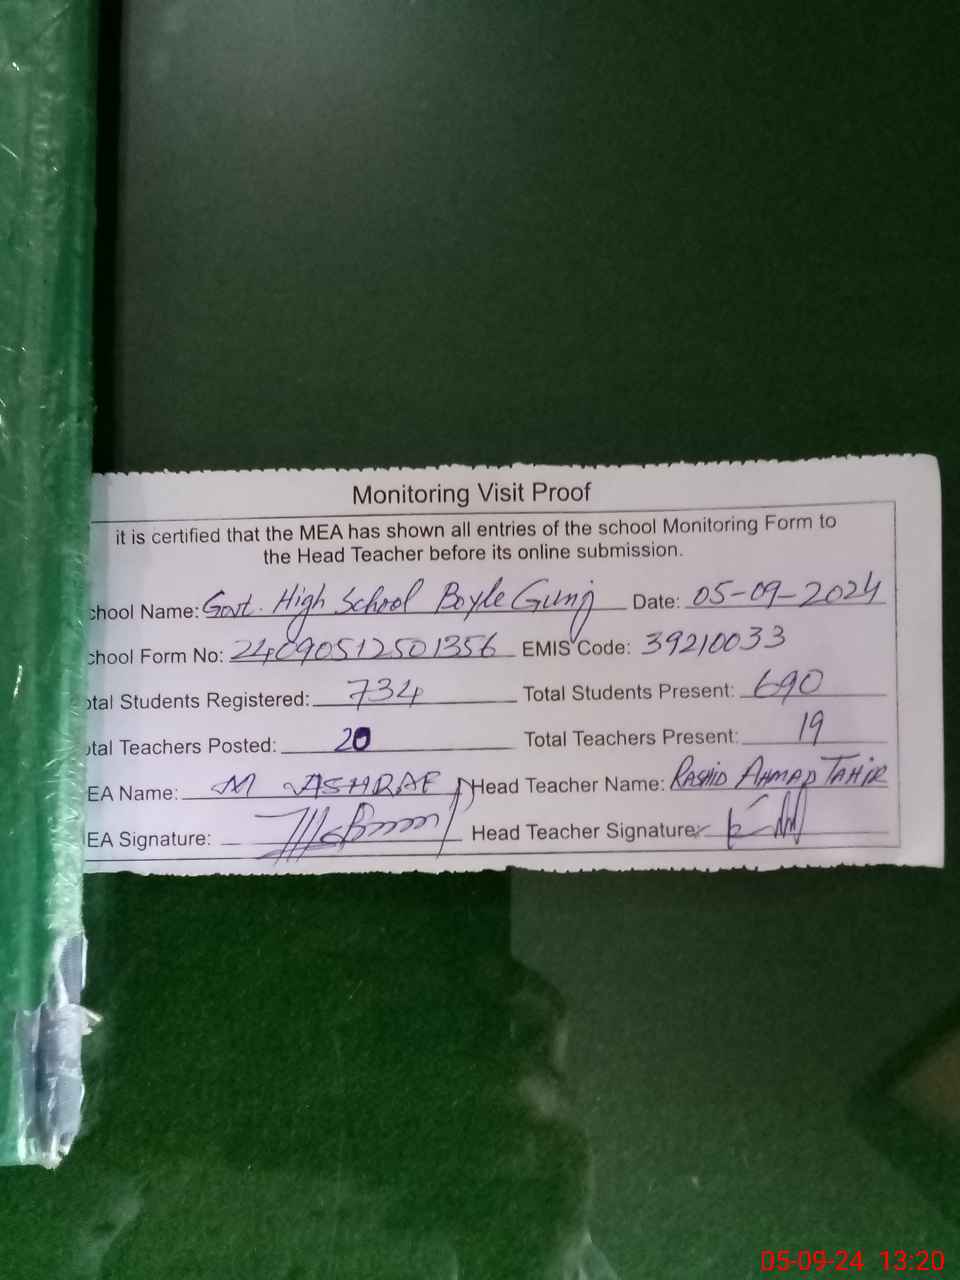 Monitoring Visit Proof
it is certified that the MEA has shown all entries of the school Monitoring Form to
the Head Teacher before its online submission.
chool Name: Govt. High School Boyle Gunj Date: 05-09-2024
chool Form No: 24090512501356 EMIS Code: 39210033
otal Students Registered: 734 Total Students Present: 690
otal Teachers Posted: 20 Total Teachers Present: 19
EA Name: M ASHRAF Head Teacher Name: RASHID AHMAD TAHIR
EA Signature: Head Teacher Signature:
05-09-24 13:20